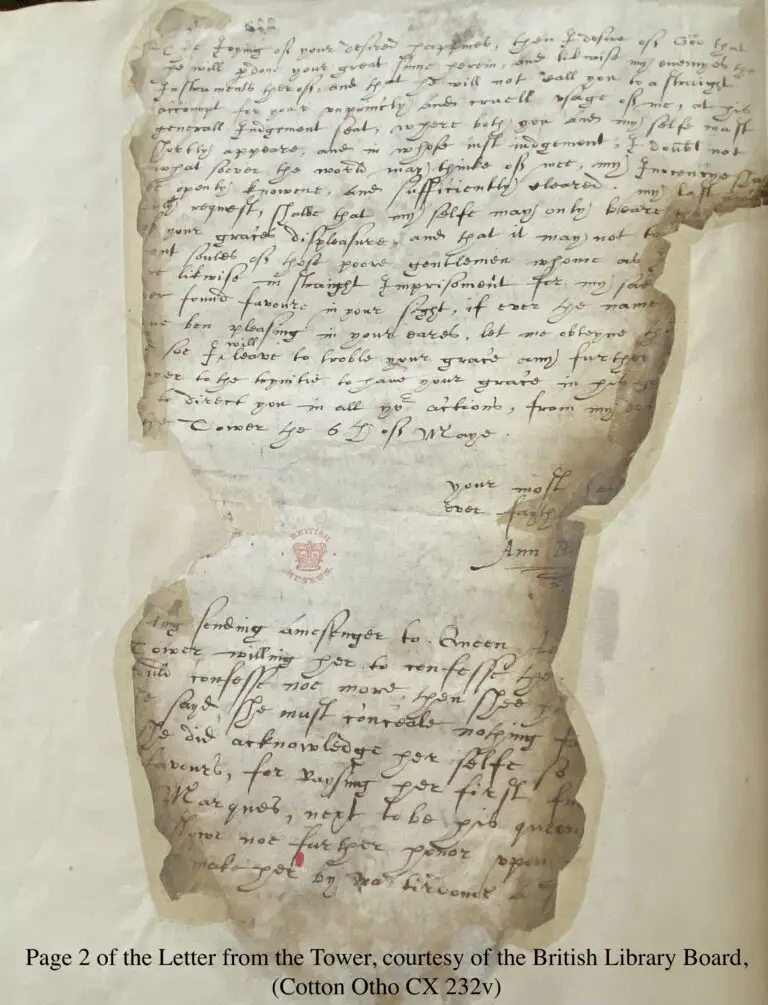 the Joying of your desired happines, then I desire of God that
he will pdone your great sinne herein, and likwise my enemyes the
Instruments herof, and that he will not call you to a straight
accompt for your unprincely and cruell usage of me, at his
generall Judgement seat, where both you and my selfe must
shortly appeare, and in whose iust iudgement, I doubt not
what soever the world may thinke of mee, my Innocencye
openly knowene, and sufficiently cleared. my last
request, shalbe that my selfe may only beare
your graces displeasure, and that it may not to
soules of those poore gentlemen whome as
likwise in straight Imprisoment for my sake
found favoure in your sight, if ever the name
ben pleasing in your eares, let me obteyne
soe I will leave to troble your grace any further
to the trynitie to have your grace in his
to direct you in all yor actions, from my
the Tower the 6th of Maye.
your most
ever fayth
Ann B
BRITISH
MUSEUM
sending a mesenger to Queen
Tower willing her to confesse the
confesse noe more, then shee
sayd she must conceale nothing
she did acknowledge her selfe so
favours, for raysing her first
Marques, next to be his queen
noe further honor upon
make her by
Page 2 of the Letter from the Tower, courtesy of the British Library Board,
(Cotton Otho CX 232v)